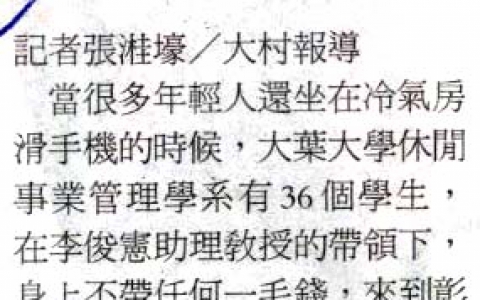 記者張溎壕／大村報導
當很多年輕人還坐在冷氣房
滑手機的時候，大葉大學休閒
事業管理學系有36個學生，
在李俊憲助理教授的帶領下，
身上不帶任何一毛錢，來到彰